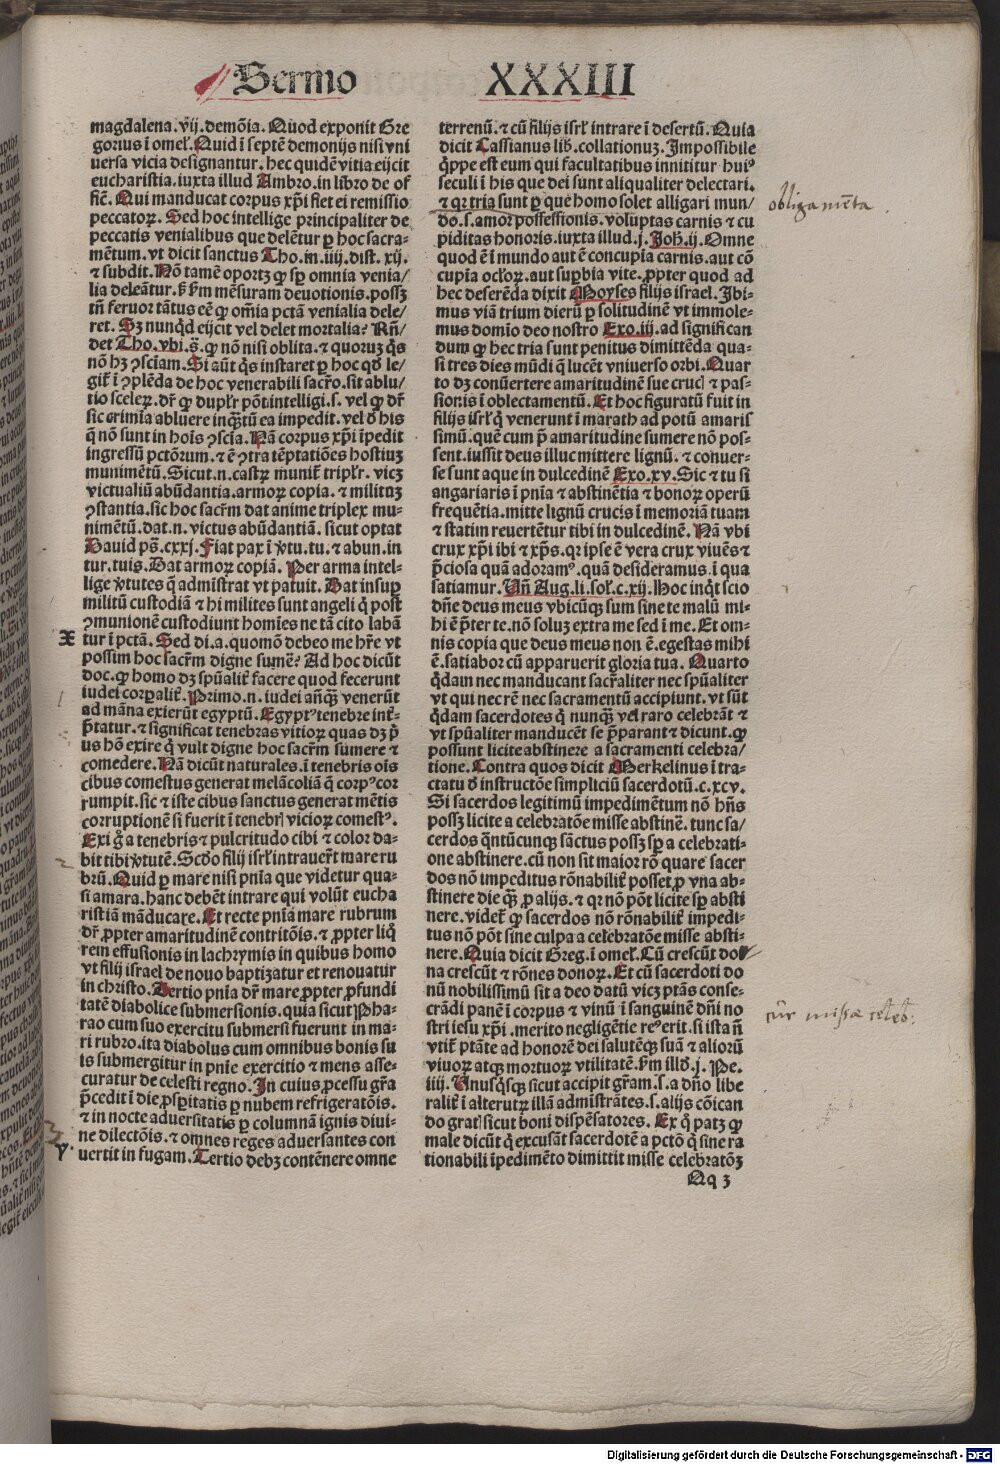 Sermo XXXIII
magdalena .vij. demōia. Quod exponit Gre
gorius ī omeł. Quid ī septē demonijs nisi vni
uersa vicia designantur. hec quidē vitia eijcit
eucharistia. iuxta illud Ambro. in libro de of
fiē. Qui manducat corpus xp̄i fiet ei remissio
peccatoꝝ. Sed hoc intellige principaliter de
peccatis venialibus que delētur ꝑ hoc sacra-
mētum. vt dicit sanctus Tho. in .iiij. dist. xij.
⁊ subdit. Nō tamē oportꝫ ꝙ sꝑ omnia venia/
lia deleātur. s̄m mēsuram deuotionis. possꝫ
tn̄ feruor tātus eē ꝙ om̄ia pctā venialia dele/
ret. Sꝫ nunqd eijcit vel delet mortalia? Rn̄/
det Tho. vbi .s̄. ꝙ nō nisi oblita. ⁊ quoruꝫ q̄s
nō hꝫ ꝯsciam. Si aūt q̄s instaret ꝑ hoc qd le/
git̄ ī ꝯplēda de hoc venerabili sacr̄o. sit ablu/
tio sceleꝝ. dr̄ ꝙ dupłr pōt intelligi .s. vel ꝙ dr̄
sic crimīa abluere inq̄stū ea impedit. vel ꝺ his
q̄ nō sunt in hoīs ꝯscīa. Nā corpus xp̄i īpedit
ingressū pctōrum. ⁊ ē ꝯtra tēptatiōes hostiuꝫ
munimētū. Sicut .n. castꝝ munit̄ triplr̄. vicꝫ
victualiū abūdantia. armoꝝ copia. ⁊ militūꝫ
ꝯstantia. sic hoc sacr̄m dat anime triplex mu-
nimētū. dat .n. victus abūdantiā. sicut optat
Dauid ps̄. cxxj. Fiat pax ī v̄tu. tu. ⁊ abun. in
tur. tuis. Dat armoꝝ copiā. Per arma intel-
lige v̄tutes q̄ admīstrat vt patuit. Dat insuꝑ
militū custodiā ⁊ hi milites sunt angeli q̄ post
ꝯmunionē custodiunt homīes ne tā cito labā
tur ī pctā. Sed di. a. quomō debeo me hr̄e vt
possim hoc sacr̄m digne sumē? Ad hoc dicūt
doc. ꝙ homo dꝫ spūalit̄ facere quod fecerunt
iudei corꝑalit̄. Primo .n. iudei an̄qꝫ venerūt
ad māna exierūt egyptū. Egyptꝰ tenebre int̄-
p̄tatur. ⁊ significat tenebras vitioꝝ quas dꝫ p̄
us hō exire q̄ vult digne hoc sacr̄m sumere ⁊
comedere. Nā dicūt naturales. ī tenebris oīs
cibus comestus generat melācoliā q̄ corpꝰ cor
rumpit. sic ⁊ iste cibus sanctus generat mētis
corruptionē si fuerit ī tenebrꝭ vicioꝝ comestꝰ.
Exi gͣ a tenebris ⁊ pulcritudo cibi ⁊ color da-
bit tibi v̄tutē. Scd̄o filij isrł intrauer̄t mare ru
brū. Quid ꝑ mare nisi pn̄ia que videtur qua-
si amara. hanc debēt intrare qui volūt eucha
ristiā māducare. Et recte pn̄ia mare rubrum
dr̄ ꝓpter amaritudinē contritōis. ⁊ ꝓpter liq̄
rem effusionis in lachrymis in quibus homo
vt filij israel de nouo baptizatur et renouatur
in christo. Tertio pn̄ia dr̄ mare ꝓpter ꝓfundi
tatē diabolice submersionis. quia sicut Pha-
rao cum suo exercitu submersi fuerunt in ma-
ri rubro. ita diabolus cum omnibus bonis su
is submergitur in pnīe exercitio ⁊ mens asse-
curatur de celesti regno. In cuius ꝓcessu gr̄a
p̄cedit ī die ꝓsꝑitatis ꝑ nubem refrigeratōis.
⁊ in nocte aduersitatis ꝑ columnā ignis diui-
ne dilectōis. ⁊ omnes reges aduersantes con
uertit in fugam. Tertio debꝫ contēnere omne
terrenū. ⁊ cū filijs isrł intrare ī desertū. Quia
dicit Cassianus lib̄. collationuꝫ. Impossibile
q̄ppe est eum qui facultatibus innititur huiꝰ
seculi ī his que dei sunt aliqualiter delectari.
⁊ qr tria sunt ꝑ que homo solet alligari mun/
do .s. amor possessionis. voluptas carnis ⁊ cu
piditas honoris. iuxta illud .j. Joh̄. ij. Omne
quod ē ī mundo aut ē concupīa carnis. aut cō
cupīa ocłoꝝ. aut suꝑbia vite. ꝓpter quod ad
hec deserēda dixit Moyses filijs israel. Ibi-
mus viā trium dierū ꝑ solitudinē vt immole-
mus domīo deo nostro Exo. iij. ad significan
dum ꝙ hec tria sunt penitus dimittēda qua-
si tres dies mūdi q̄ lucēt vniuerso orbi. Quar
to dꝫ conūertere amaritudinē sue crucꝭ ⁊ pas-
sionis ī oblectamentū. Et hoc figuratū fuit in
filijs isrł q̄ venerunt ī marath ad potū amaris
simū. quē cum p̄ amaritudine sumere nō pos-
sent. iussit deus illuc mittere lignū. ⁊ conuer-
se sunt aque in dulcedinē Exo. xv. Sic ⁊ tu si
angariaris ī pnīa ⁊ abstinētia ⁊ bonoꝝ operū
frequētia. mitte lignū crucis ī memoriā tuam
⁊ statim reuertētur tibi in dulcedinē. Nā vbi
crux xp̄i ibi ⁊ xp̄s. qr ipse ē vera crux viuēs ⁊
p̄ciosa quā adoramꝰ. quā desideramus. ī qua
satiamur. Vn̄ Aug. li. soł. c. xij. Hoc inq̄t scio
dn̄e deus meus vbicūqꝫ sum sine te malū mi-
hi ē p̄ter te. nō soluꝫ extra me sed ī me. Et om-
nis copia que deus meus non ē. egestas mihi
ē. satiabor cū apparuerit gloria tua. Quarto
q̄dam nec manducant sacr̄aliter nec spūaliter
vt qui nec rē nec sacramentū accipiunt. vt sūt
q̄dam sacerdotes q̄ nunqꝫ vel raro celebrāt ⁊
vt spūaliter manducēt se p̄parant ⁊ dicunt. ꝙ
possunt licite abstinere a sacramenti celebra/
tione. Contra quos dicit Merkelinus ī tra-
ctatu ꝺ instructōe simpliciū sacerdotū. c. xcv.
Si sacerdos legitimū impedimētum nō hn̄s
possꝫ licite a celebratōe misse abstinē. tunc sa/
cerdos q̄ntūcunqꝫ sāctus possꝫ sꝑ a celebrati-
one abstinere. cū non sit maior rō quare sacer
dos nō impeditus rōnabilit̄ posset ꝓ vna ab-
stinere die qꝫ ꝓ alijs. ⁊ qr nō pōt licite sꝑ absti
nere. videt̄ ꝙ sacerdos nō rōnabilit̄ impedi-
tus nō pōt sine culpa a celebratōe misse absti-
nere. Quia dicit Greg. ī omeł. Cū crescūt do/
na crescūt ⁊ rōnes donoꝝ. Et cū sacerdoti do
nū nobilissimū sit a deo datū vicꝫ ptās conse-
crādi panē ī corpus ⁊ vinū ī sanguinē dn̄i no
stri iesu xp̄i. merito negligētie reꝰ erit. si ista n̄
vtit̄ ptāte ad honorē dei salutēqꝫ suā ⁊ alioꝝ
viuoꝝ atqꝫ mortuoꝝ vtilitatē. s̄m illd̄ .j. Pe.
iiij. Vnusq̄sqꝫ sicut accipit gr̄am .s. a dn̄o libe
ralit̄ ī alterutꝝ illā admīstrātes .s. alijs cōican
do gratꝭ sicut boni dispēsatores. Ex q̄ patꝫ ꝙ
male dicūt q̄ excusāt sacerdotē a pctō q̄ sine ra
tionabili īpedimēto dimittit misse celebratōꝫ
Qq 3
obligamēta
cur missæ celeb:
X
Y.
Digitalisierung gefördert durch die Deutsche Forschungsgemeinschaft - DFG